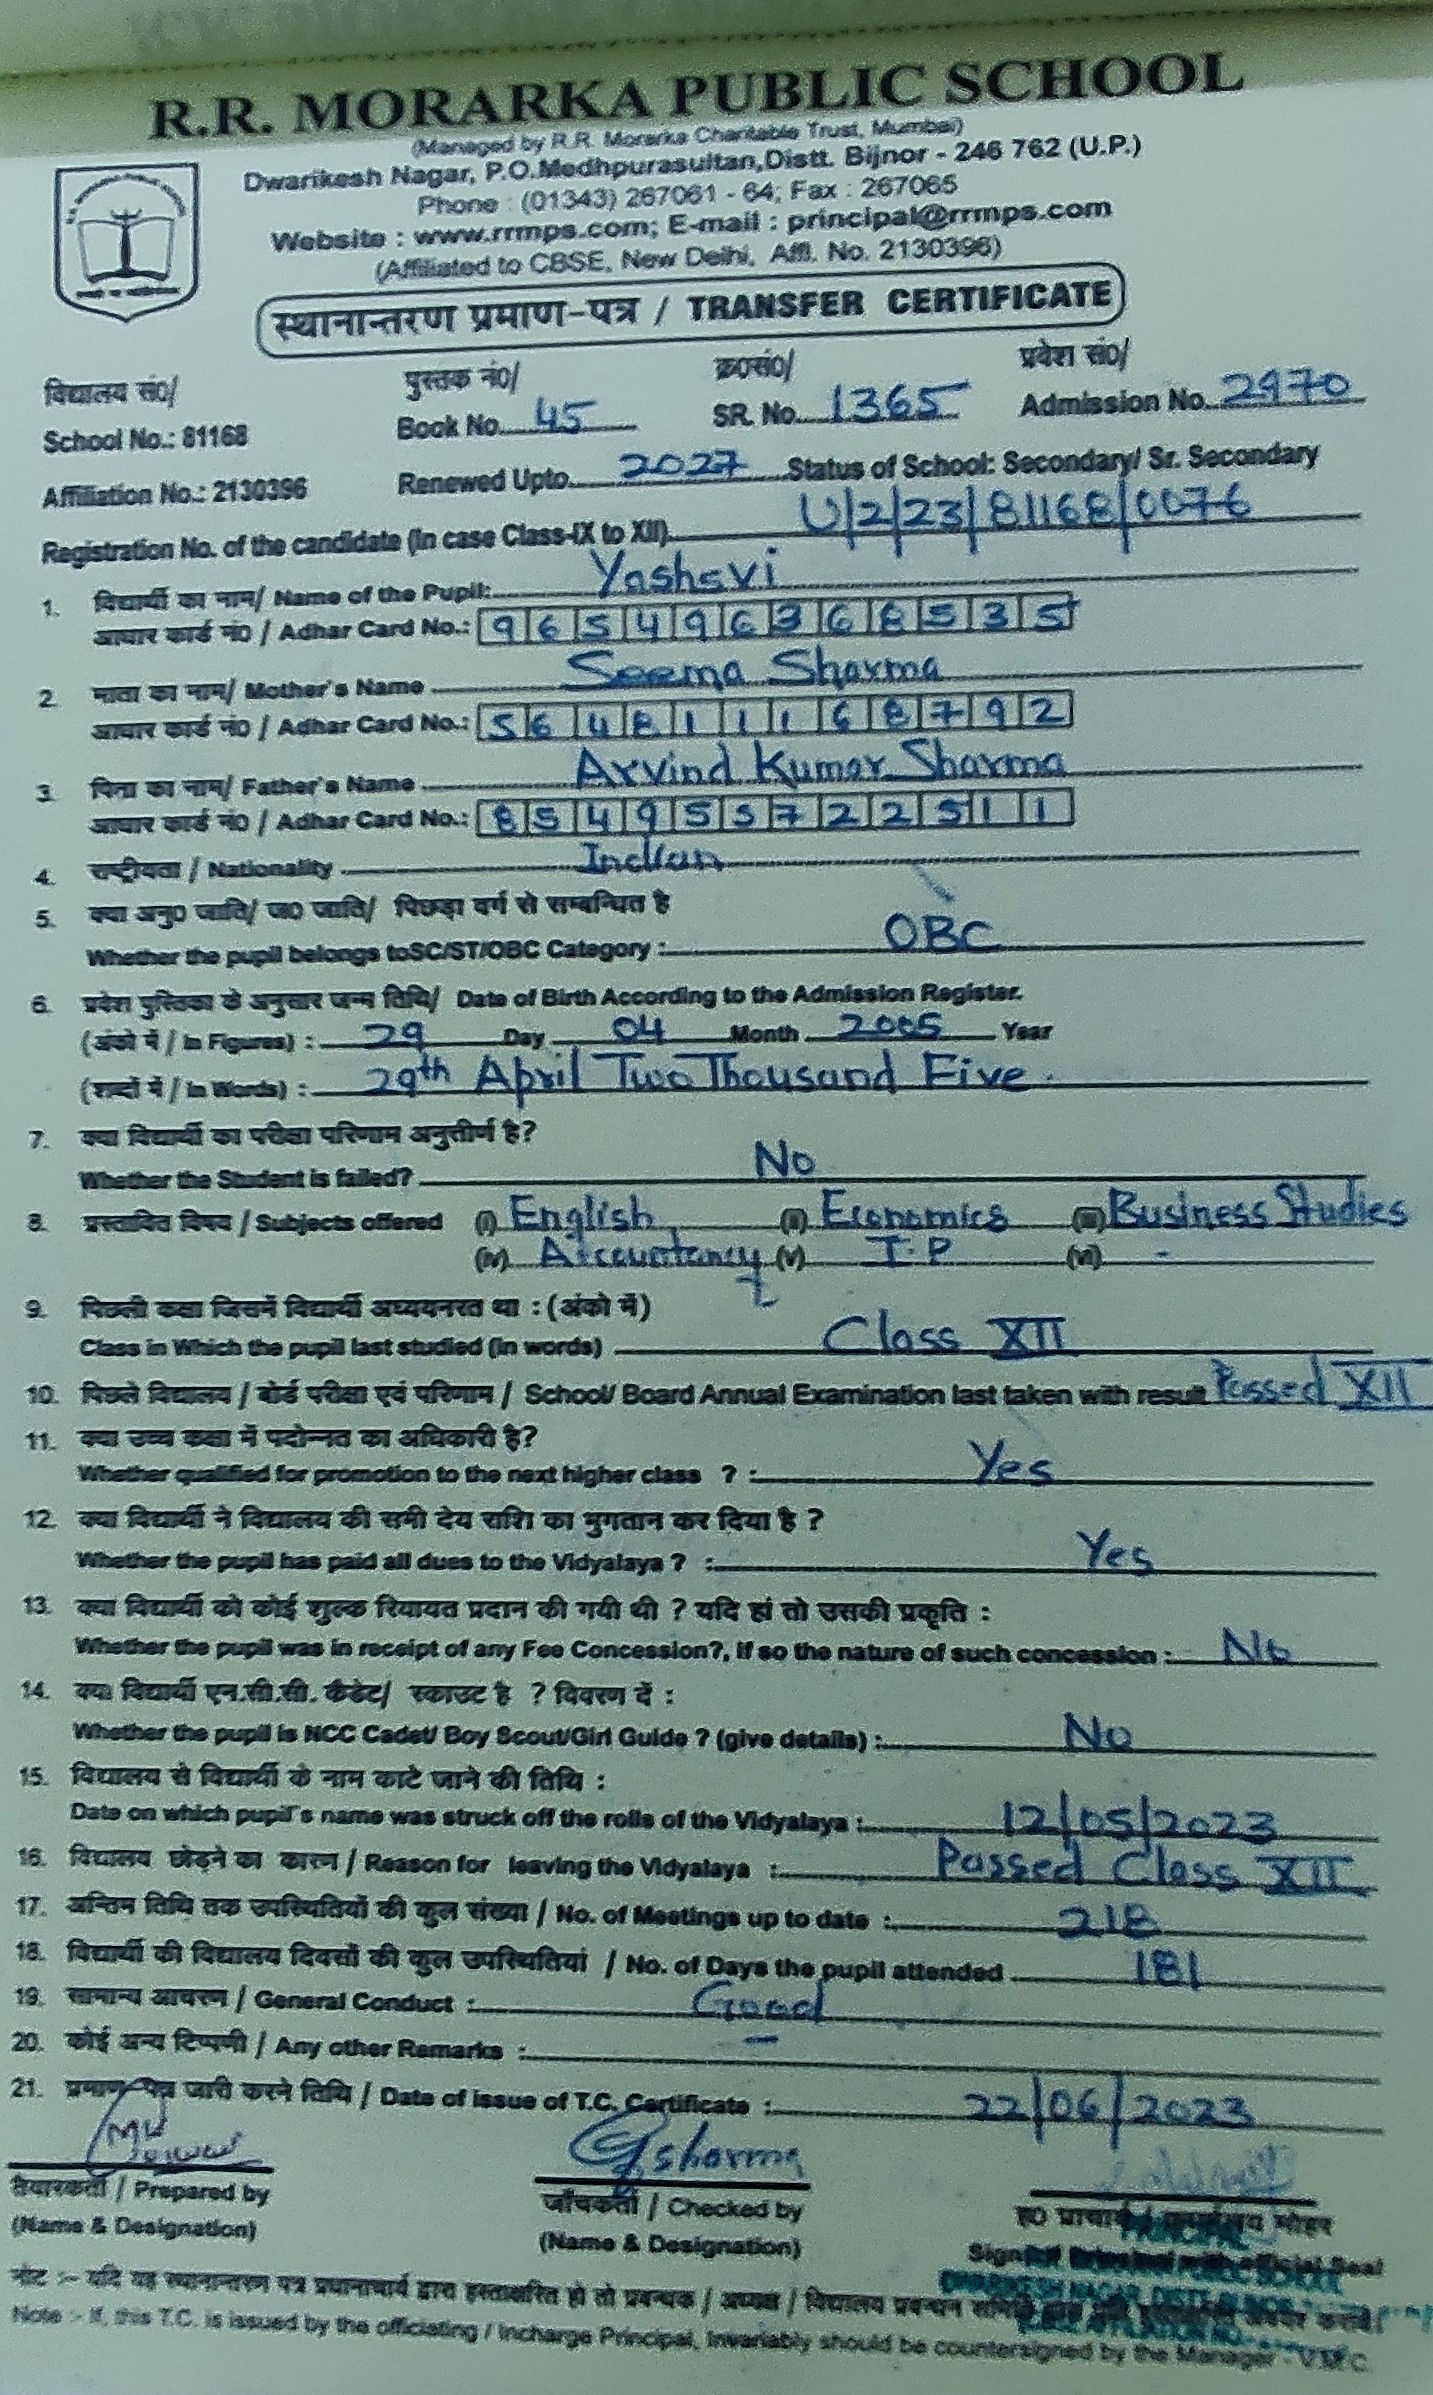 R.R. MORARKA PUBLIC SCHOOL
(Managed by R.R. Morarka Charitable Trust, Mumbai)
Dwarikesh Nagar, P.O.Medhpurasultan,Distt. Bijnor - 246 762 (U.P.)
Phone : (01343) 267061 - 64; Fax : 267065
Website : www.rrmps.com; E-mail : principal@rrmps.com
(Affiliated to CBSE, New Delhi, Affl. No. 2130396)
स्थानान्तरण प्रमाण-पत्र / TRANSFER CERTIFICATE
विद्यालय सं0/ पुस्तक नं0/ क्र0सं0/ प्रवेश सं0/
School No.: 81168 Book No. 45 SR. No. 1365 Admission No. 2970
Affiliation No.: 2130396 Renewed Upto 2027 Status of School: Secondary/ Sr. Secondary
Registration No. of the candidate (In case Class-IX to XII) U/2/23/81168/0076
1. विद्यार्थी का नाम/ Name of the Pupil: Yashsvi
आधार कार्ड नं0 / Adhar Card No.: 965496368535
2. माता का नाम/ Mother's Name Seema Sharma
आधार कार्ड नं0 / Adhar Card No.: 564811168792
3. पिता का नाम/ Father's Name Arvind Kumar Sharma
आधार कार्ड नं0 / Adhar Card No.:
4. राष्ट्रीयता / Nationality Indian
5. क्या अनु0 जाति/ ज0 जाति/ पिछड़ा वर्ग से सम्बन्धित है
Whether the pupil belongs toSC/ST/OBC Category : OBC
6. प्रवेश पुस्तिका के अनुसार जन्म तिथि/ Date of Birth According to the Admission Register.
(अंको में / In Figures) : 29 Day 04 Month 2005 Year
(शब्दों में / In Words) : 29th April Two Thousand Five.
7. क्या विद्यार्थी का परीक्षा परिणाम अनुत्तीर्ण है?
Whether the Student is failed? No
8. प्रस्तावित विषय / Subjects offered (i) English (ii) Economics (iii) Business Studies
(iv) Accountancy (v) I.P (vi) -
9. पिछली कक्षा जिसमें विद्यार्थी अध्ययनरत था : (अंको में)
Class in Which the pupil last studied (in words) Class XII
10. पिछले विद्यालय / बोर्ड परीक्षा एवं परिणाम / School/ Board Annual Examination last taken with result Passed XII
11. क्या उच्च कक्षा में पदोन्नत का अधिकारी है?
Whether qualified for promotion to the next higher class ? : Yes
12. क्या विद्यार्थी ने विद्यालय की सभी देय राशि का भुगतान कर दिया है ?
Whether the pupil has paid all dues to the Vidyalaya ? : Yes
13. क्या विद्यार्थी को कोई शुल्क रियायत प्रदान की गयी थी ? यदि हां तो उसकी प्रकृति :
Whether the pupil was in receipt of any Fee Concession?, If so the nature of such concession : No
14. क्या विद्यार्थी एन.सी.सी. कैडेट/ स्काउट है ? विवरण दें :
Whether the pupil is NCC Cadet/ Boy Scout/Girl Guide ? (give details) : No
15. विद्यालय से विद्यार्थी के नाम काटे जाने की तिथि :
Date on which pupil's name was struck off the rolls of the Vidyalaya : 12/05/2023
16. विद्यालय छोड़ने का कारण / Reason for leaving the Vidyalaya : Passed Class XII
17. अन्तिम तिथि तक उपस्थितियों की कुल संख्या / No. of Meetings up to date : 218
18. विद्यार्थी की विद्यालय दिवसों की कुल उपस्थितियां / No. of Days the pupil attended 181
19. सामान्य आचरण / General Conduct : Good
20. कोई अन्य टिप्पणी / Any other Remarks : -
21. प्रमाण-पत्र जारी करने तिथि / Date of issue of T.C. Certificate : 22/06/2023
Gsharma
तैयारकर्ता / Prepared by जाँचकर्ता / Checked by ह0 प्राचार्य / कार्यालय मोहर
(Name & Designation) (Name & Designation)
PRINCIPAL
नोट :- यदि यह स्थानान्तरण पत्र प्रधानाचार्य द्वारा हस्ताक्षरित हो तो प्रबन्धक / अध्यक्ष / विद्यालय प्रबन्धन
Note :- If, this T.C. is issued by the officiating / Incharge Principal, Invariably should be countersigned by the Manager - V.M.C.